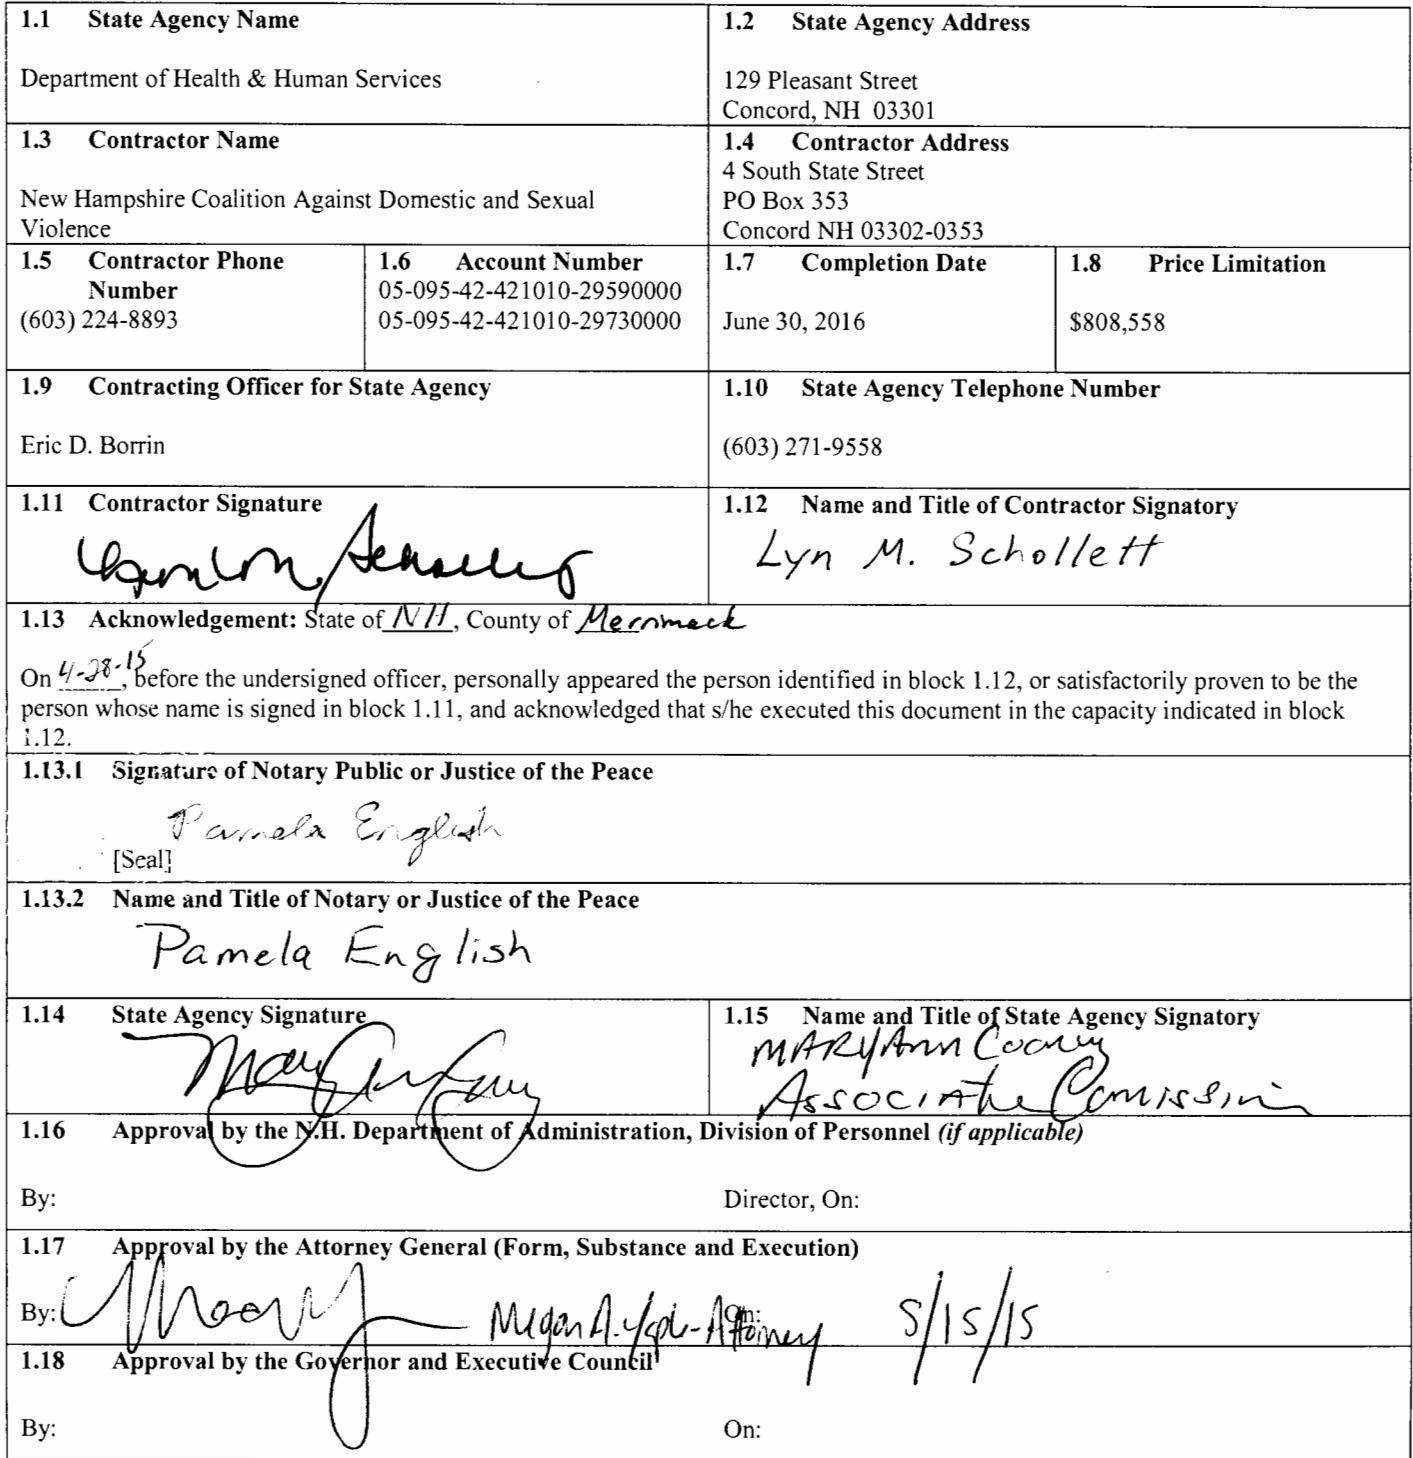 1.1 State Agency Name
Department of Health & Human Services
1.2 State Agency Address
129 Pleasant Street
Concord, NH 03301
1.3 Contractor Name
New Hampshire Coalition Against Domestic and Sexual
Violence
1.4 Contractor Address
4 South State Street
PO Box 353
Concord NH 03302-0353
1.5 Contractor Phone
Number
(603) 224-8893
1.6 Account Number
05-095-42-421010-29590000
05-095-42-421010-29730000
1.7 Completion Date
June 30, 2016
1.8 Price Limitation
$808,558
1.9 Contracting Officer for State Agency
Eric D. Borrin
1.10 State Agency Telephone Number
(603) 271-9558
1.11 Contractor Signature
1.12 Name and Title of Contractor Signatory
Lyn M. Schollett
1.13 Acknowledgement: State of NH, County of Merrimack
On 4-28-15, before the undersigned officer, personally appeared the person identified in block 1.12, or satisfactorily proven to be the
person whose name is signed in block 1.11, and acknowledged that s/he executed this document in the capacity indicated in block
1.12.
1.13.1 Signature of Notary Public or Justice of the Peace
Pamela English
[Seal]
1.13.2 Name and Title of Notary or Justice of the Peace
Pamela English
1.14 State Agency Signature
1.15 Name and Title of State Agency Signatory
MARY Ann Cooney
Associate
1.16 Approval by the N.H. Department of Administration, Division of Personnel (if applicable)
By: Director, On:
1.17 Approval by the Attorney General (Form, Substance and Execution)
By: Megan A. - Attorney On: 5/15/15
1.18 Approval by the Governor and Executive Council
By: On: